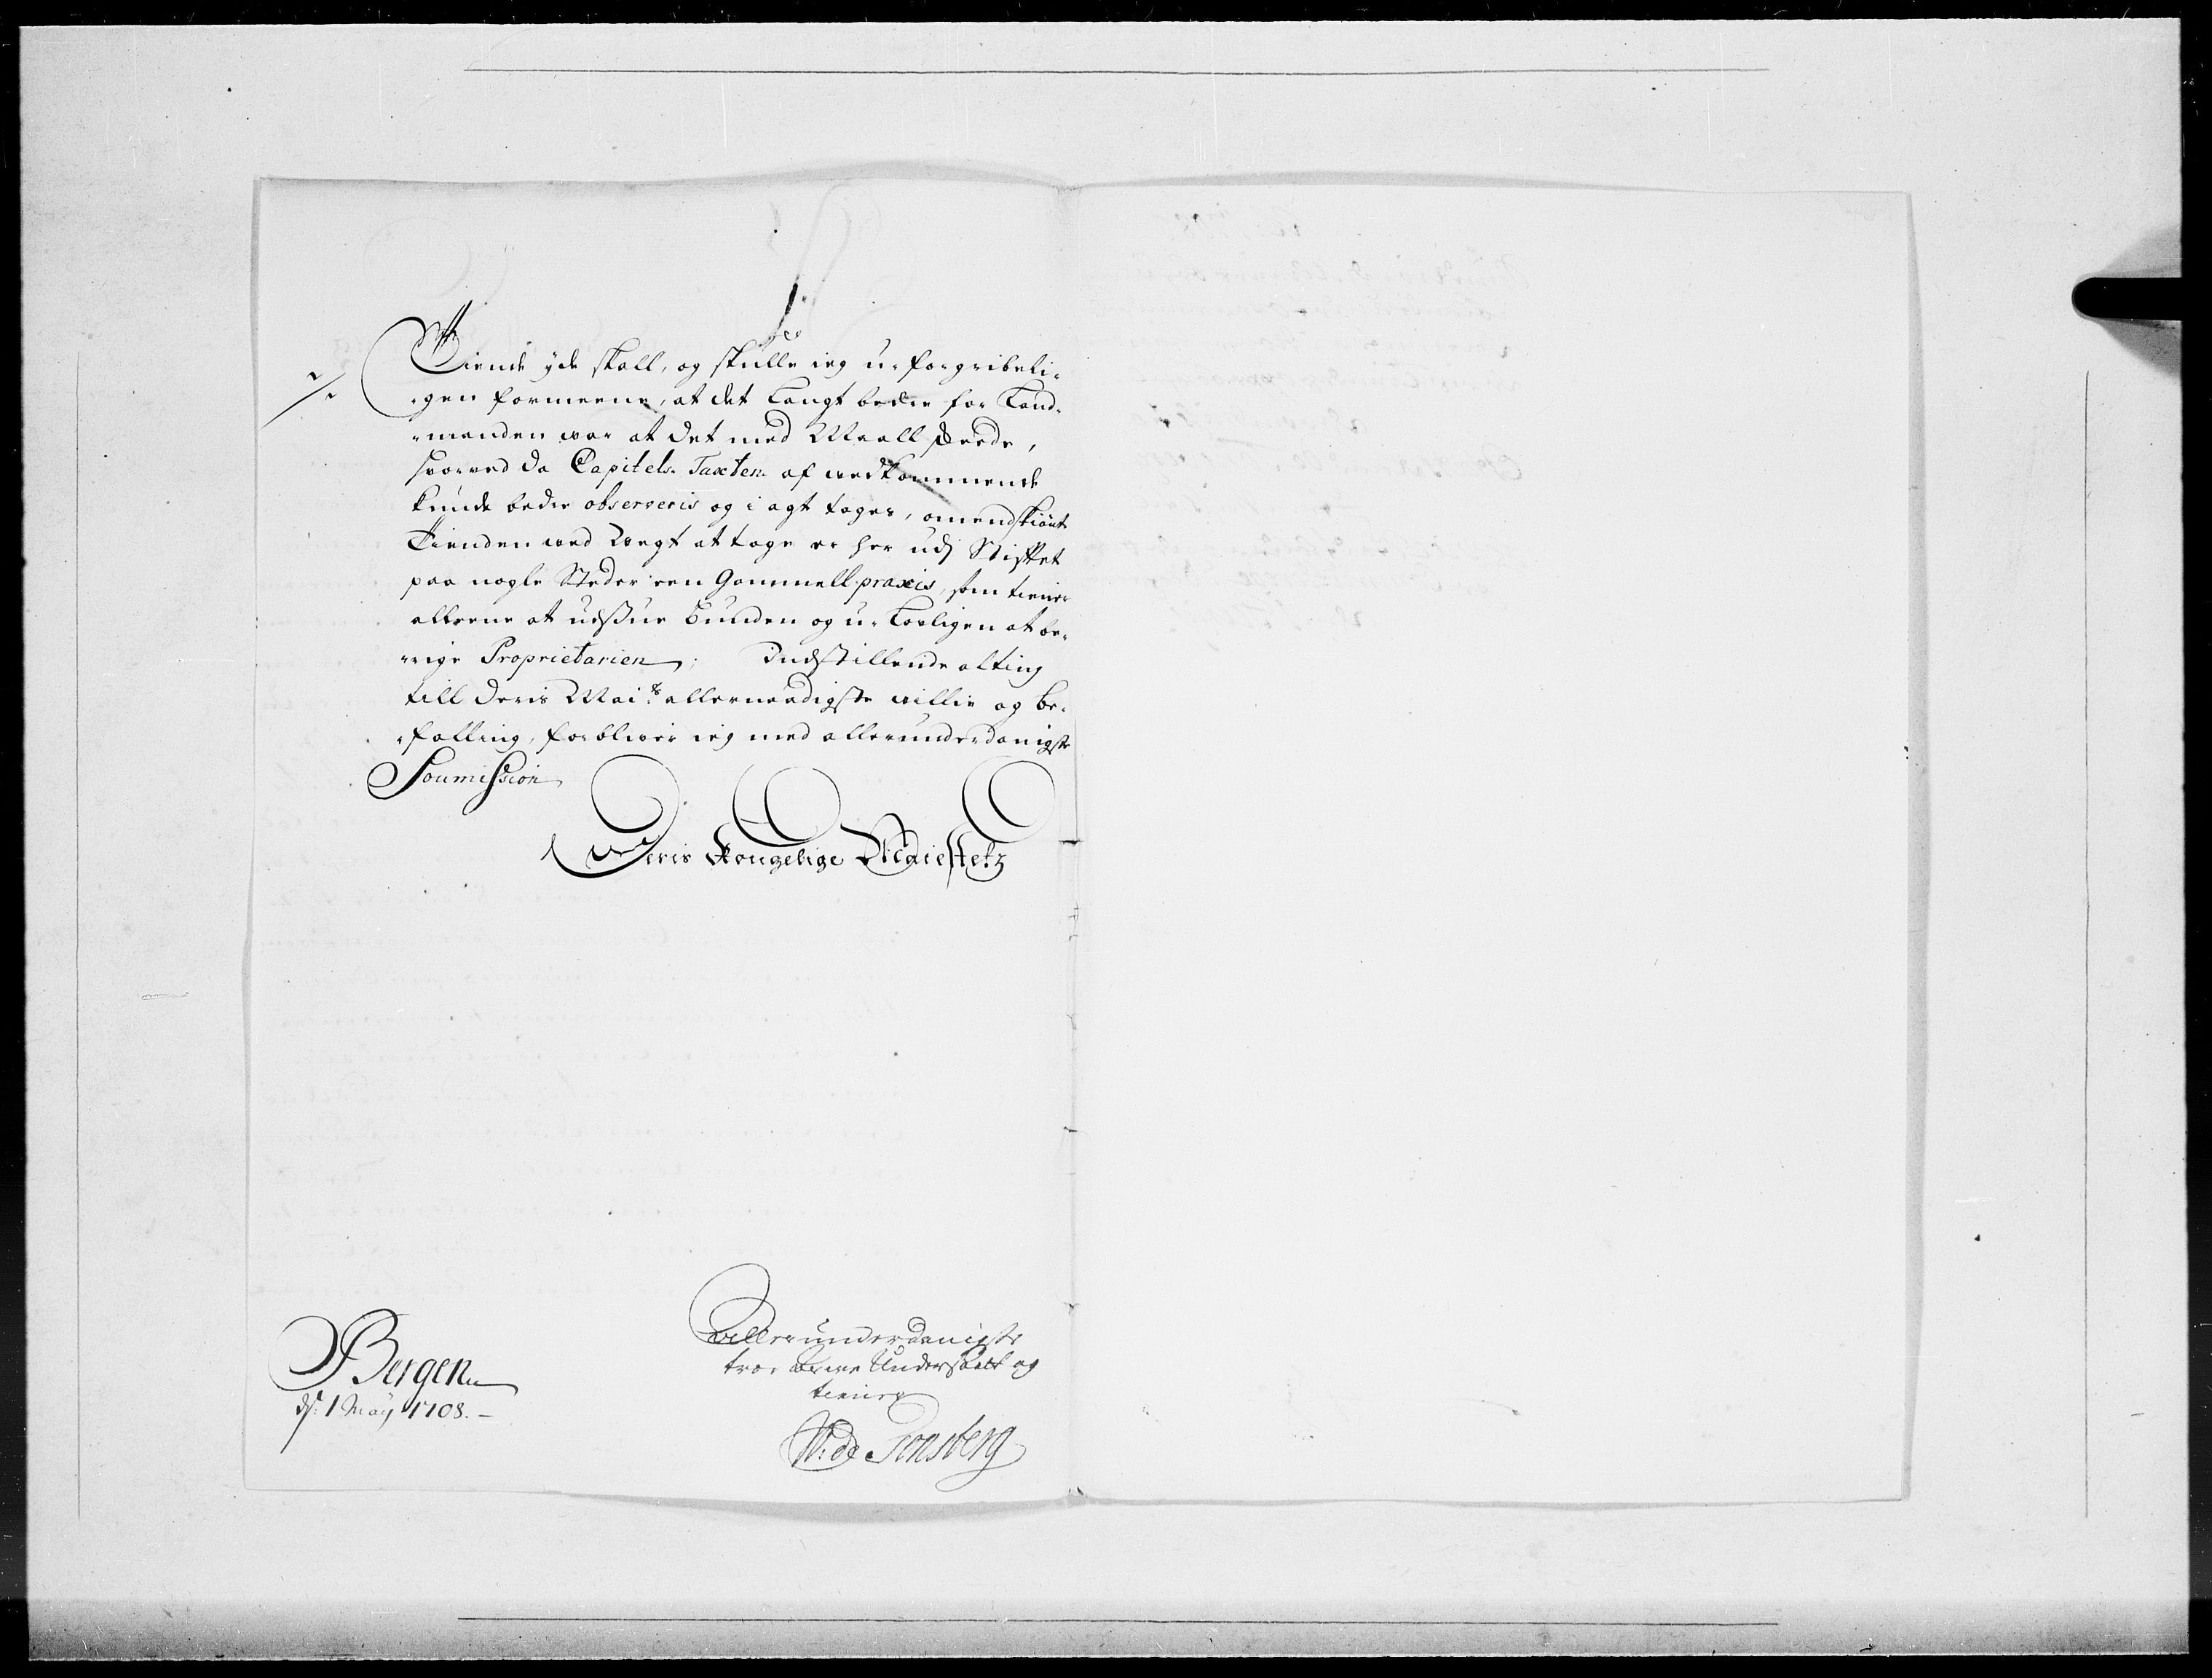 Tiende yde skall, og skulle ieg u-forgribeli-
-gen formeene, at det Langt bedre for Land-
-manden war at det med Maall skeede,
hvorved da Capitels-Taxten af wedkommende
kunde bedre observeris og i agt tages, omendskiönt
Tienden wed Wegt at tage er her udj Stiftet
paa nogle Steder een Gammell praxis, som tiener
alleene at udsue Bunden og u-Lovligen at be-
-rige Proprietarien; Indstillende alting
till Deris Mai:ts allernaadigste willie og be-
-falling, forblifver ieg med allerunderdanigste
Soumission
Deris Kongelige Maiestetz
Allerunderdanigste
troe Arfve Undersaatt og
tienere
W: de Tonsberg
Bergen
d: 1 May 1708.